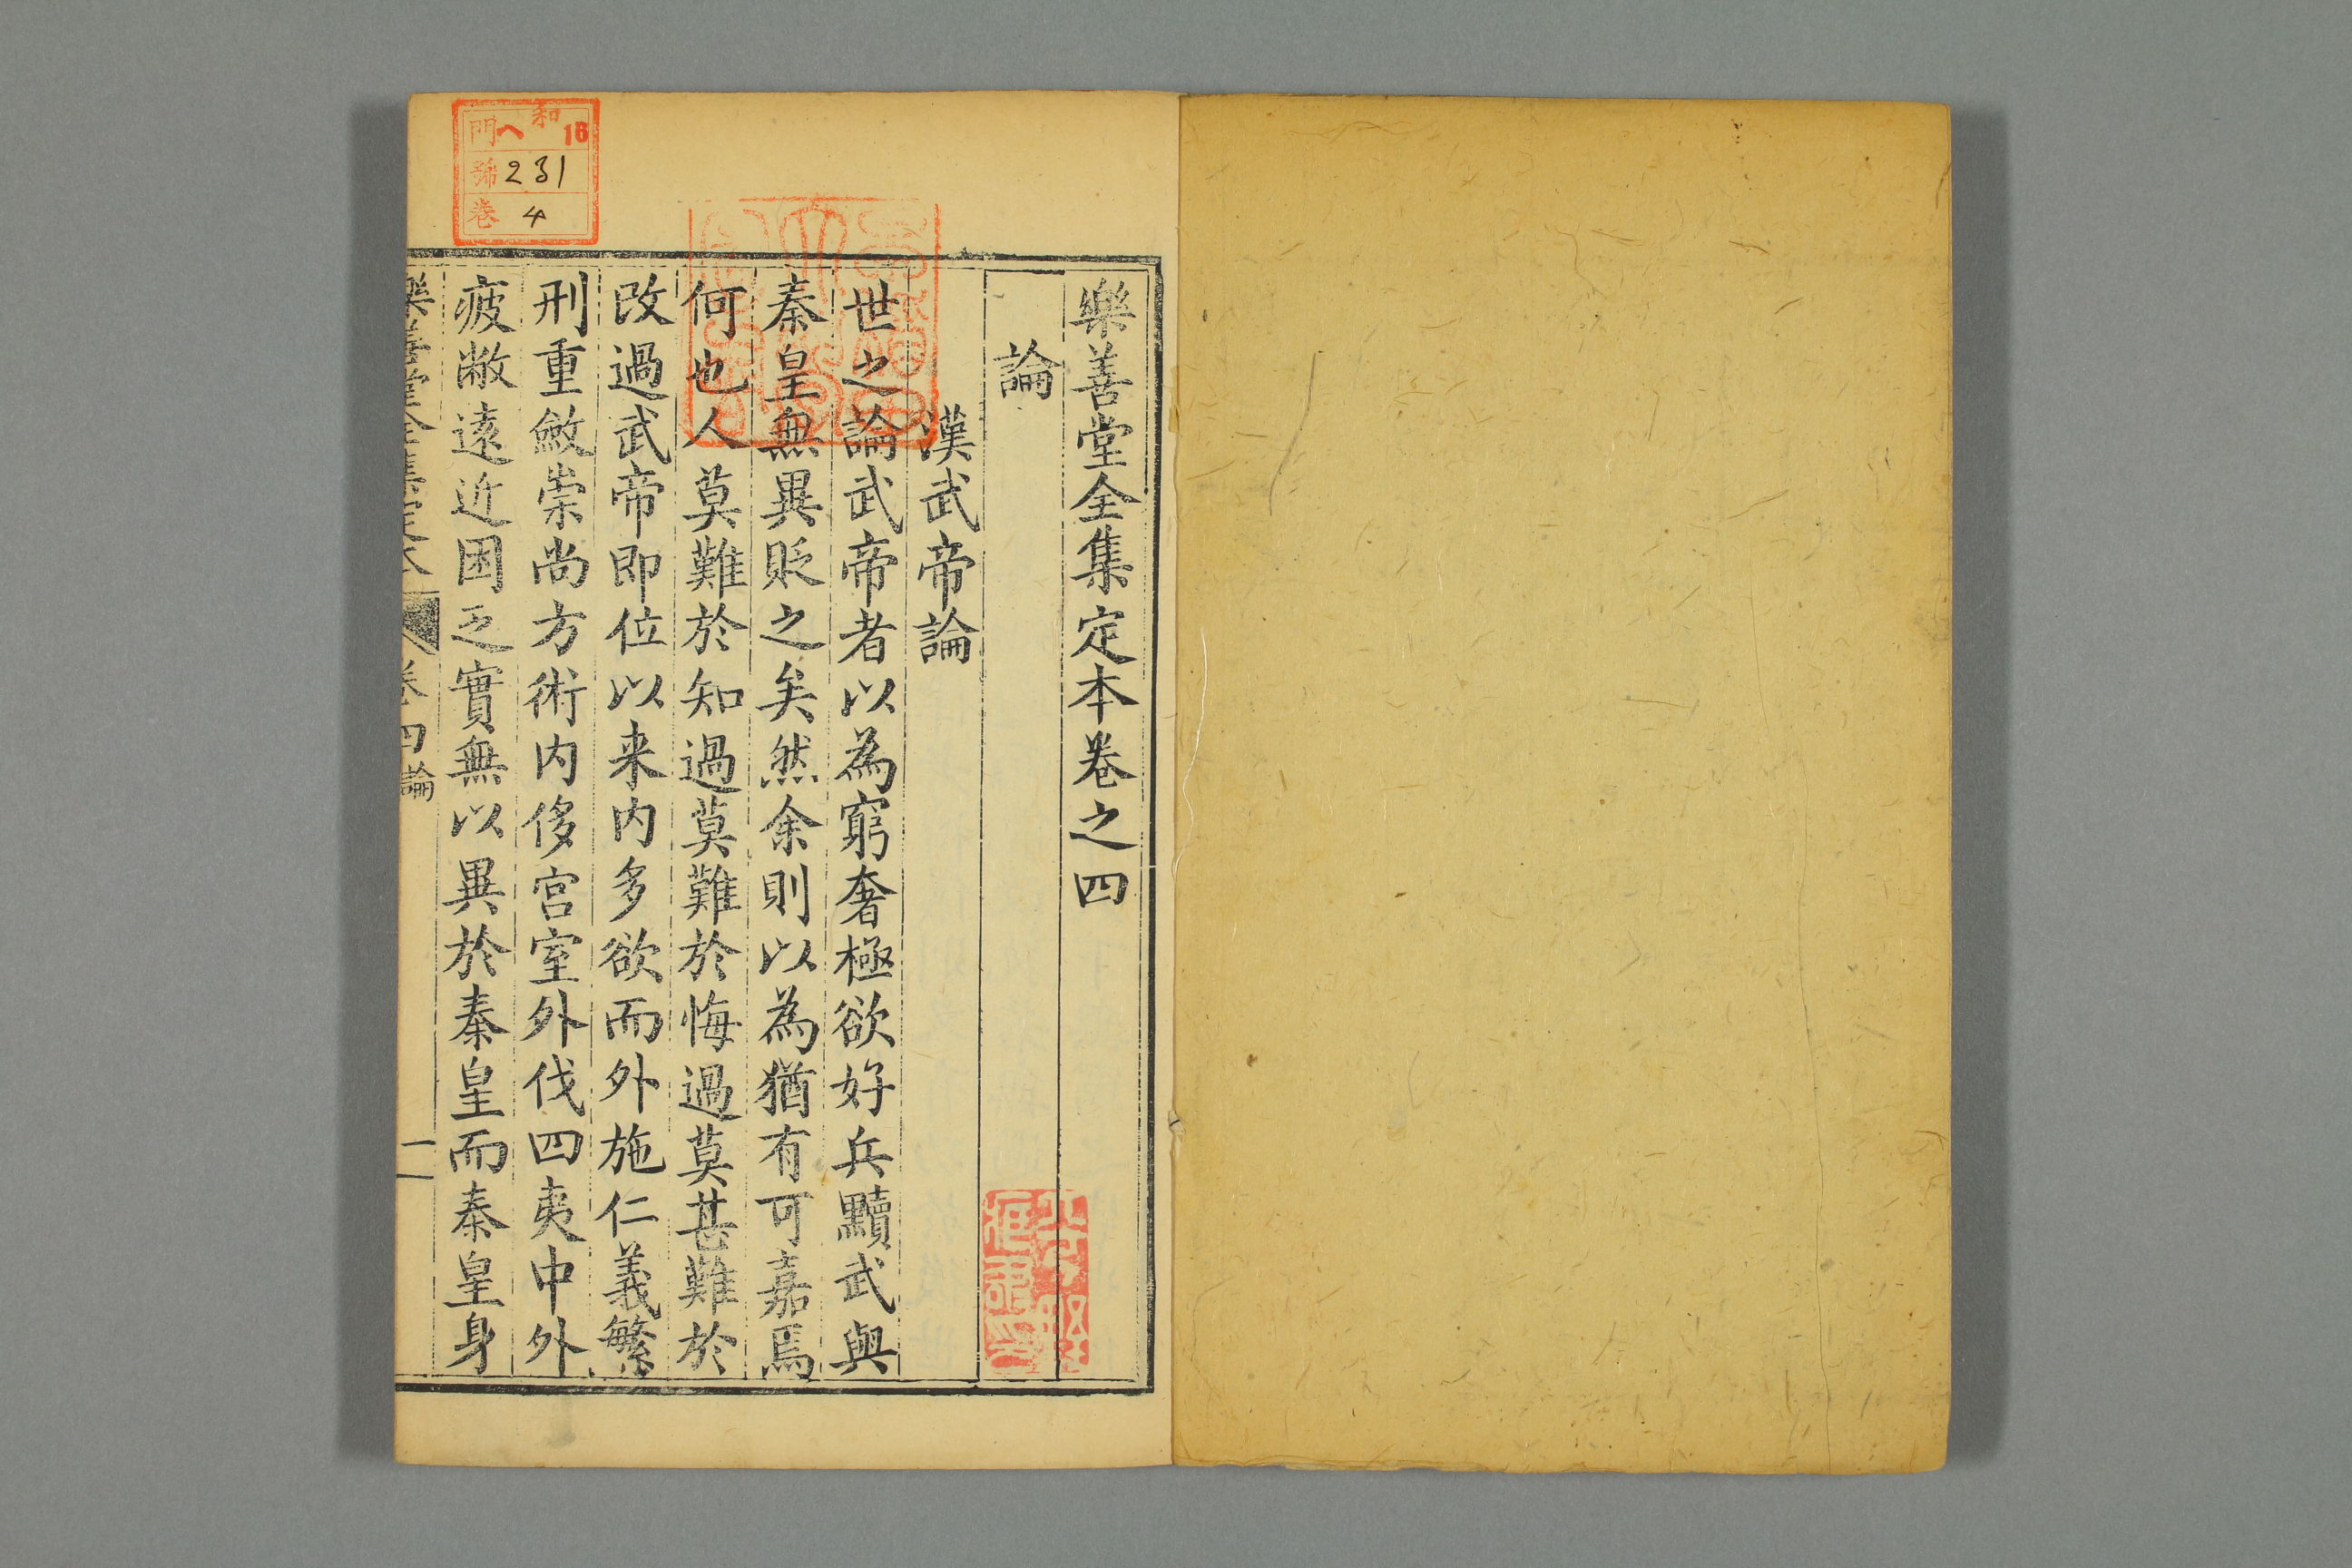 樂善堂全集定本卷之四
論
漢武帝論
世之論武帝者以為窮奢極欲好兵黷武與
秦皇無異貶之矣然余則以為猶有可嘉焉
何也人莫難於知過莫難於悔過莫甚難於
改過武帝即位以来内多欲而外施仁義繁
刑重斂崇尚方術内侈宮室外伐四夷中外
疲敝遠近困乏實無以異於秦皇而秦皇身
樂善堂全集定本 卷四 論 一
和 16
門 ヘ
號 231
卷 4